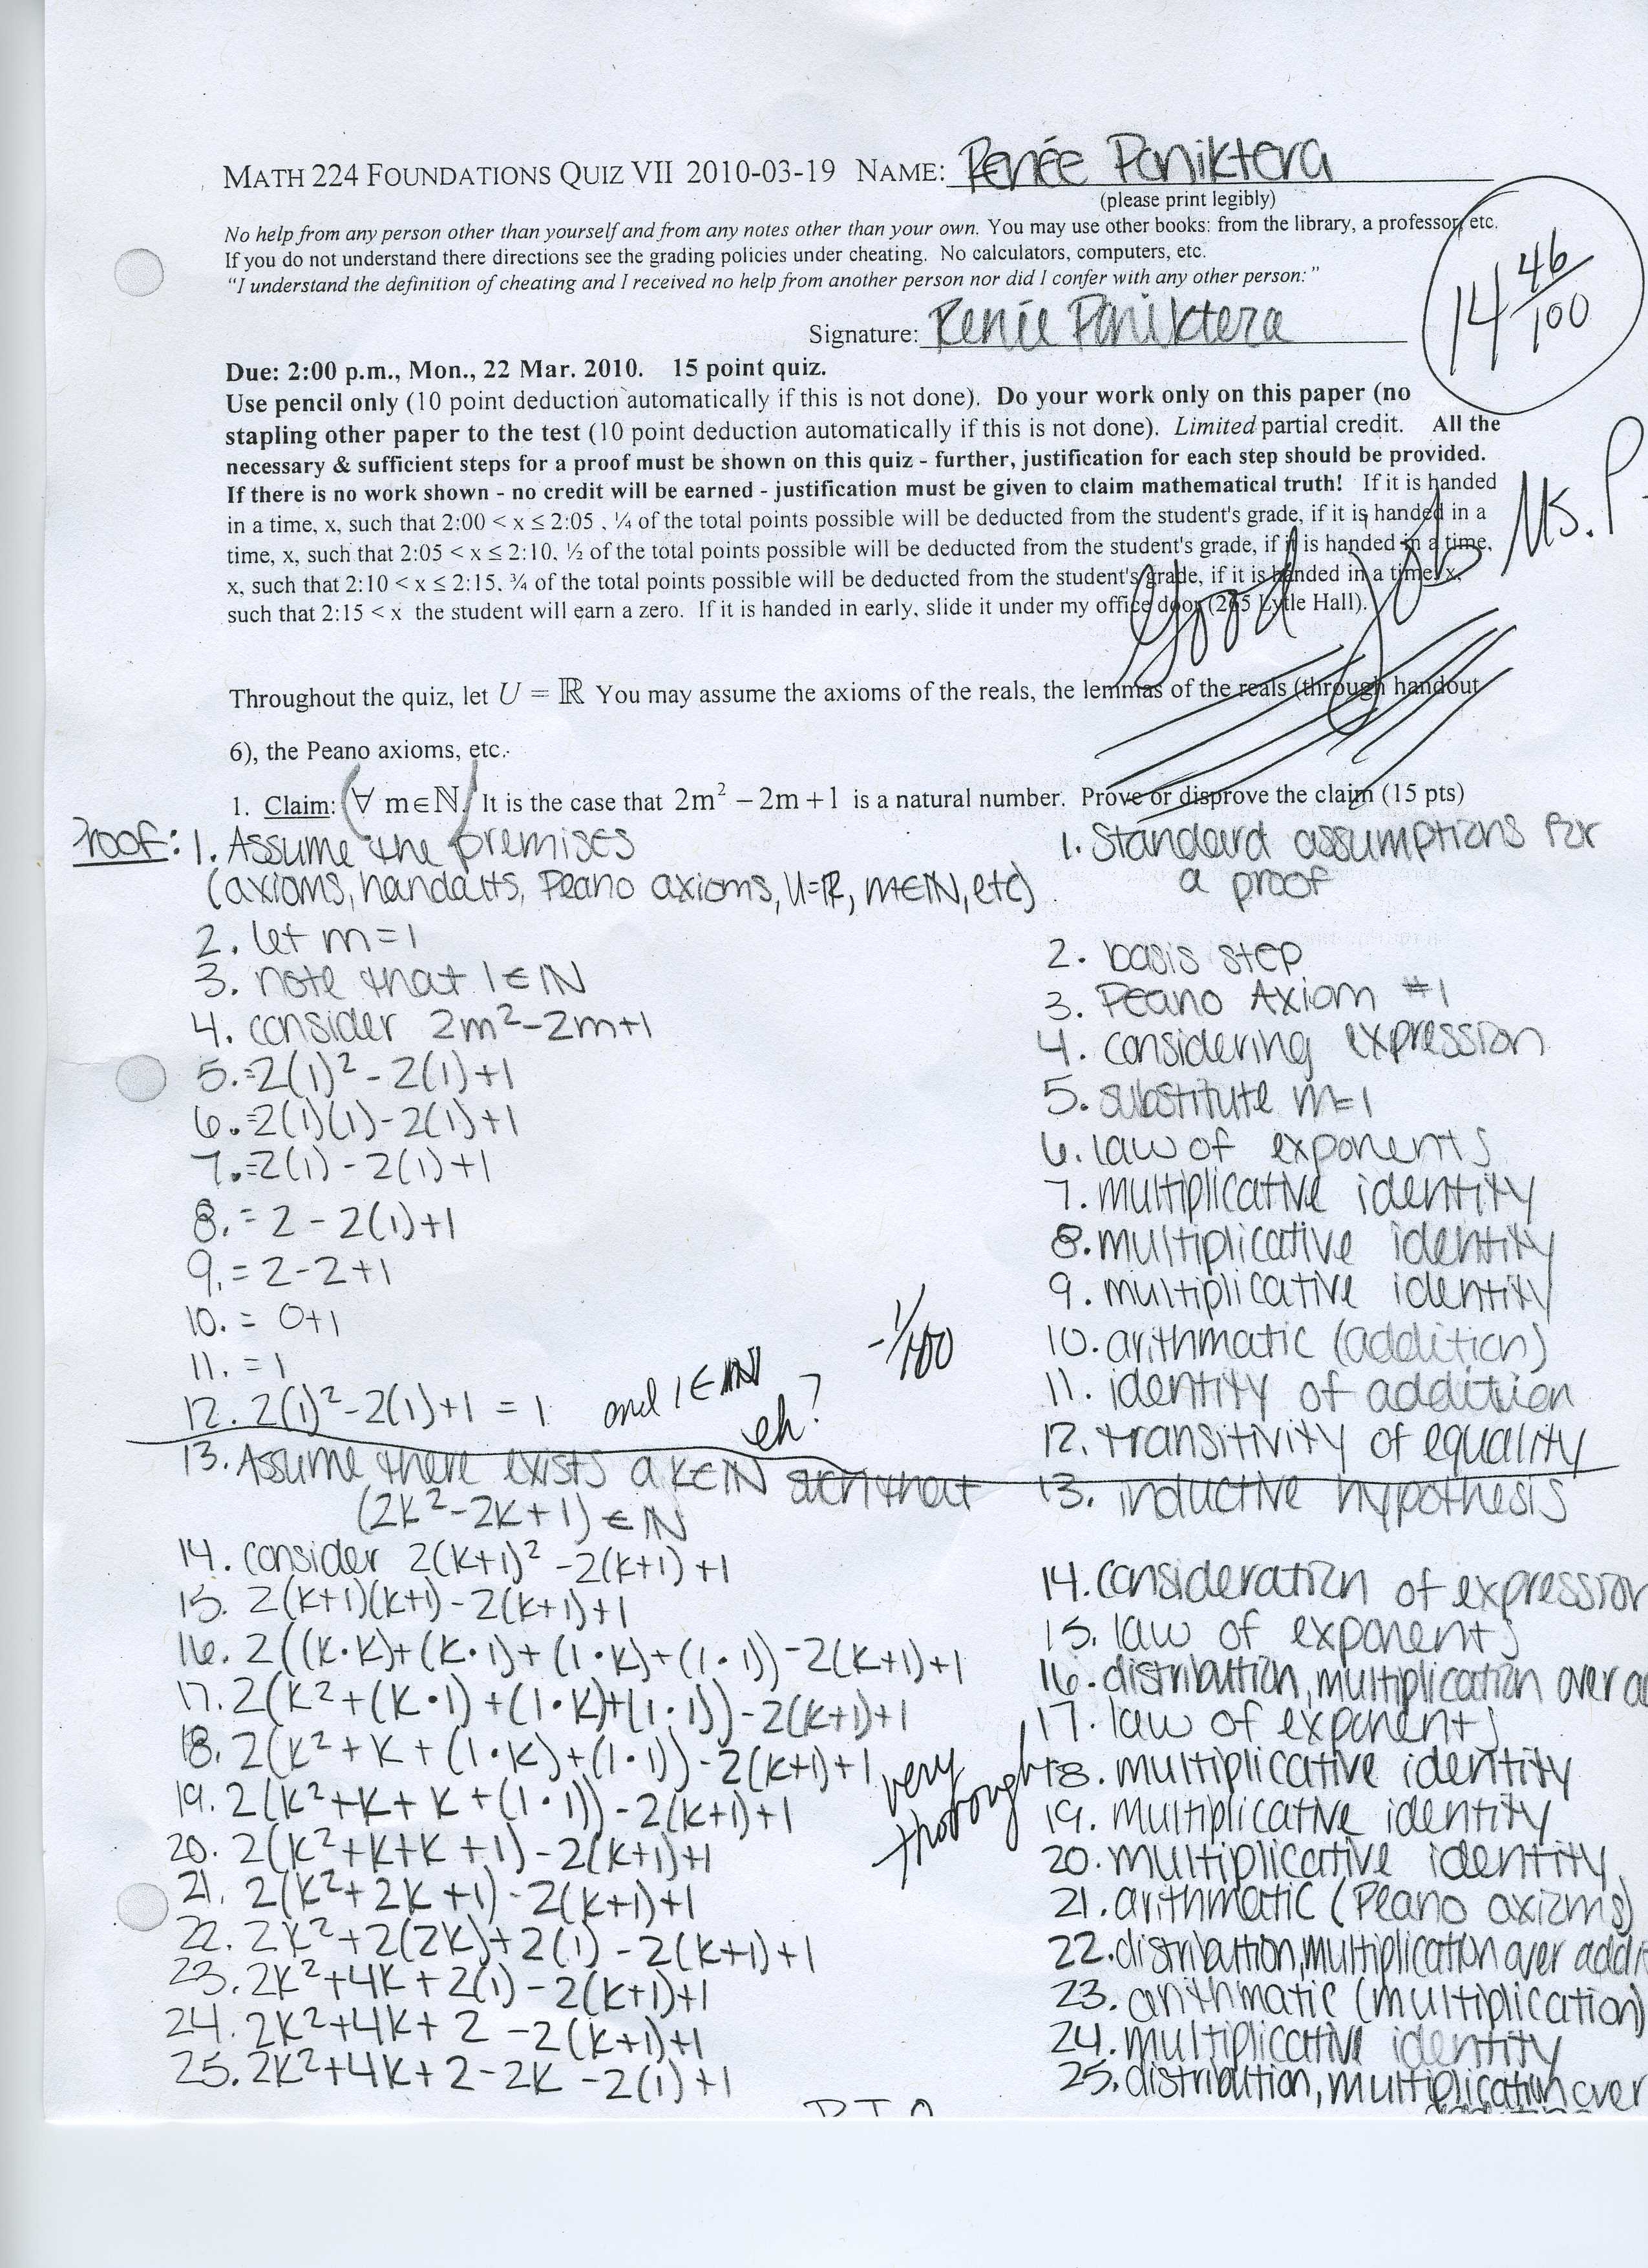 MATH 224 FOUNDATIONS QUIZ VII 2010-03-19 NAME: Renée Poniktera
(please print legibly)
No help from any person other than yourself and from any notes other than your own. You may use other books: from the library, a professor, etc.
If you do not understand there directions see the grading policies under cheating. No calculators, computers, etc.
"I understand the definition of cheating and I received no help from another person nor did I confer with any other person:"
14 46/100
Signature: Renée Poniktera
Due: 2:00 p.m., Mon., 22 Mar. 2010. 15 point quiz.
Use pencil only (10 point deduction automatically if this is not done). Do your work only on this paper (no
stapling other paper to the test (10 point deduction automatically if this is not done). Limited partial credit. All the
necessary & sufficient steps for a proof must be shown on this quiz - further, justification for each step should be provided.
If there is no work shown - no credit will be earned - justification must be given to claim mathematical truth! If it is handed
in a time, x, such that 2:00 < x ≤ 2:05 , ¼ of the total points possible will be deducted from the student's grade, if it is handed in a
time, x, such that 2:05 < x ≤ 2:10, ½ of the total points possible will be deducted from the student's grade, if it is handed in a time,
x, such that 2:10 < x ≤ 2:15, ¾ of the total points possible will be deducted from the student's grade, if it is handed in a time, x,
such that 2:15 < x the student will earn a zero. If it is handed in early, slide it under my office door (265 Lytle Hall).
Good Job Ms. P
Throughout the quiz, let U = ℝ You may assume the axioms of the reals, the lemmas of the reals (through handout
6), the Peano axioms, etc.
1. Claim: (∀ m∈ℕ) It is the case that 2m² − 2m + 1 is a natural number. Prove or disprove the claim (15 pts)
Proof: 1. Assume the premises 1. Standard assumptions for
(axioms, handouts, Peano axioms, U=ℝ, m∈ℕ, etc) a proof
2. let m=1 2. basis step
3. note that 1∈ℕ 3. Peano Axiom #1
4. consider 2m²-2m+1 4. considering expression
5. =2(1)²-2(1)+1 5. substitute m=1
6. =2(1)(1)-2(1)+1 6. law of exponents
7. =2(1)-2(1)+1 7. multiplicative identity
8. =2-2(1)+1 8. multiplicative identity
9. =2-2+1 9. multiplicative identity
10. = 0+1 10. arithmatic (addition)
11. =1 11. identity of addition
12. 2(1)²-2(1)+1 = 1 and 1∈ℕ eh? -1/100 12. transitivity of equality
13. Assume there exists a k∈ℕ such that 13. inductive hypothesis
(2k²-2k+1)∈ℕ
14. consider 2(k+1)²-2(k+1)+1 14. consideration of expression
15. 2(k+1)(k+1)-2(k+1)+1 15. law of exponents
16. 2((k·k)+(k·1)+(1·k)+(1·1))-2(k+1)+1 16. distribution, multiplication over ad
17. 2(k²+(k·1)+(1·k)+(1·1))-2(k+1)+1 17. law of exponents
18. 2(k²+k+(1·k)+(1·1))-2(k+1)+1 18. multiplicative identity
very thorough
19. 2(k²+k+k+(1·1))-2(k+1)+1 19. multiplicative identity
20. 2(k²+k+k+1)-2(k+1)+1 20. multiplicative identity
21. 2(k²+2k+1)-2(k+1)+1 21. arithmatic (Peano axioms)
22. 2k²+2(2k)+2(1)-2(k+1)+1 22. distribution, multiplication over addit
23. 2k²+4k+2(1)-2(k+1)+1 23. arithmatic (multiplication)
24. 2k²+4k+2-2(k+1)+1 24. multiplicative identity
25. 2k²+4k+2-2k-2(1)+1 25. distribution, multiplication over